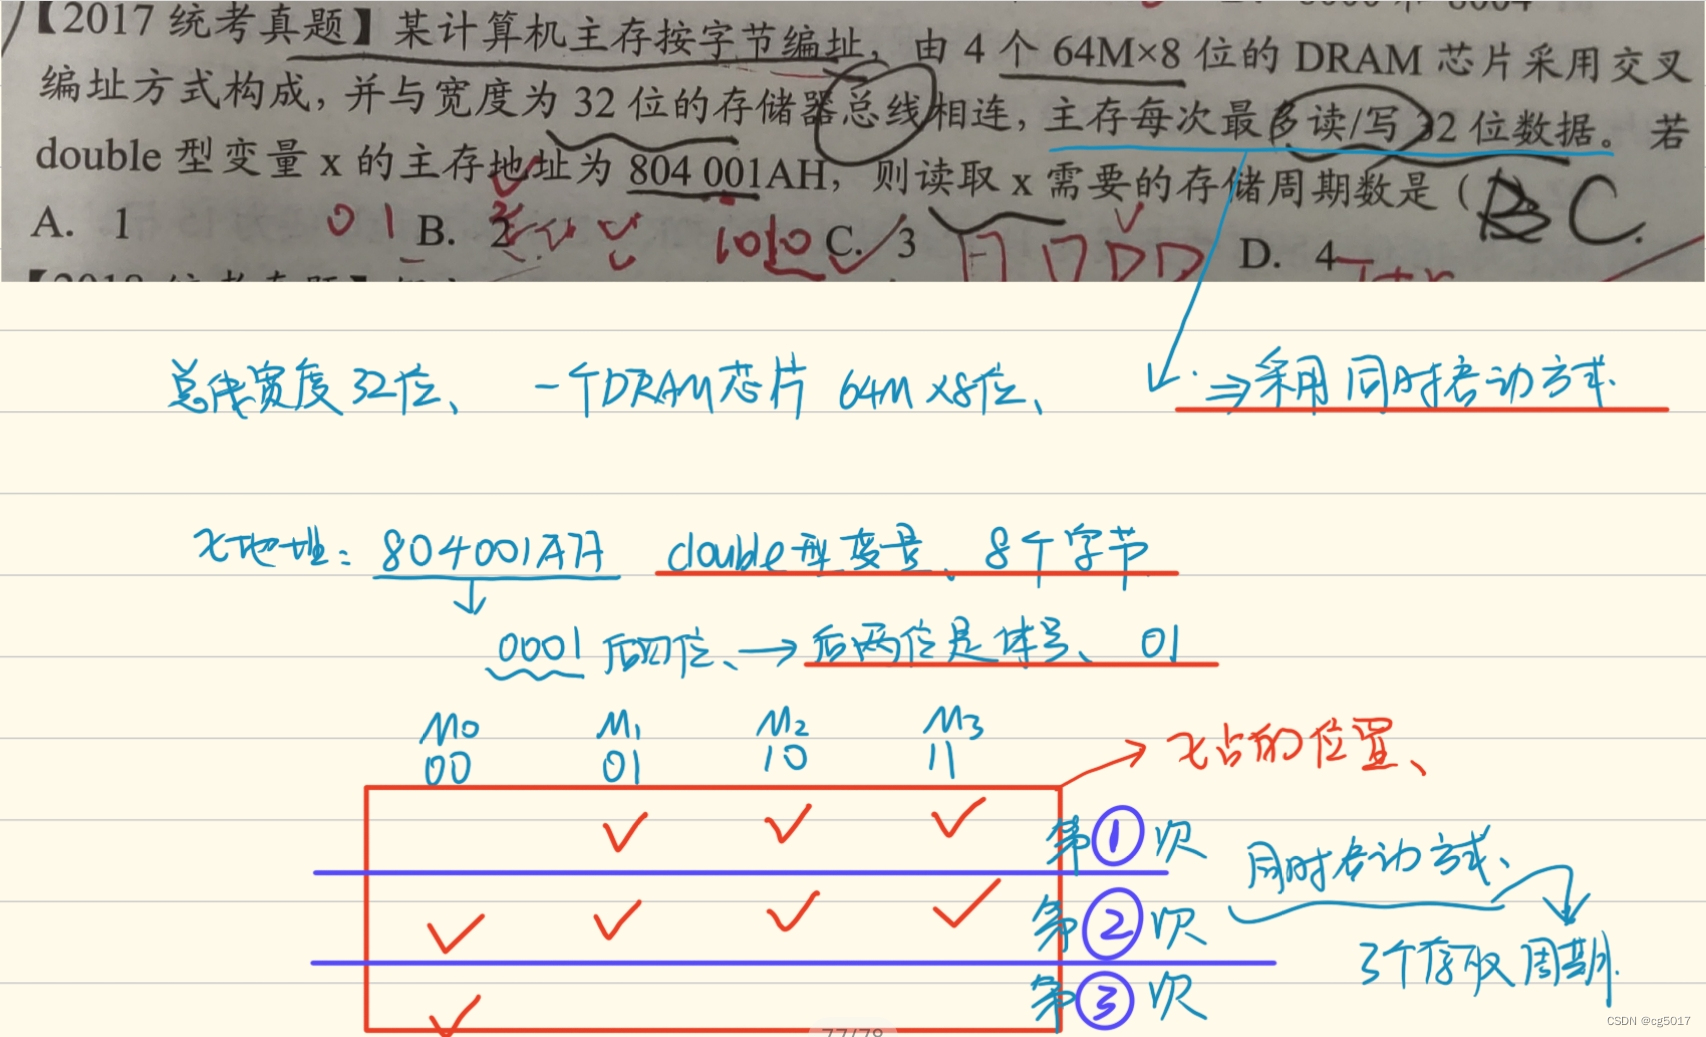 【2017 统考真题】某计算机主存按字节编址，由 4 个 64M×8 位的 DRAM 芯片采用交叉
编址方式构成，并与宽度为 32 位的存储器总线相连，主存每次最多读/写 32 位数据。若
double 型变量 x 的主存地址为 804 001AH，则读取 x 需要的存储周期数是（
B C.
A. 1 0 1 B. 2 1010 C. 3 D. 4
总线宽度 32位、 一个DRAM芯片 64M×8位、 ⇒采用同时启动方式.
x地址: 804001AH double型变量、8个字节
0001 后四位、→后两位是体号、 01
M0 M1 M2 M3
00 01 10 11
x占的位置、
✓ ✓ ✓ 第①次
同时启动方式、
✓ ✓ ✓ ✓ 第②次
3个存取周期.
✓ 第③次
77/78
CSDN @cg5017